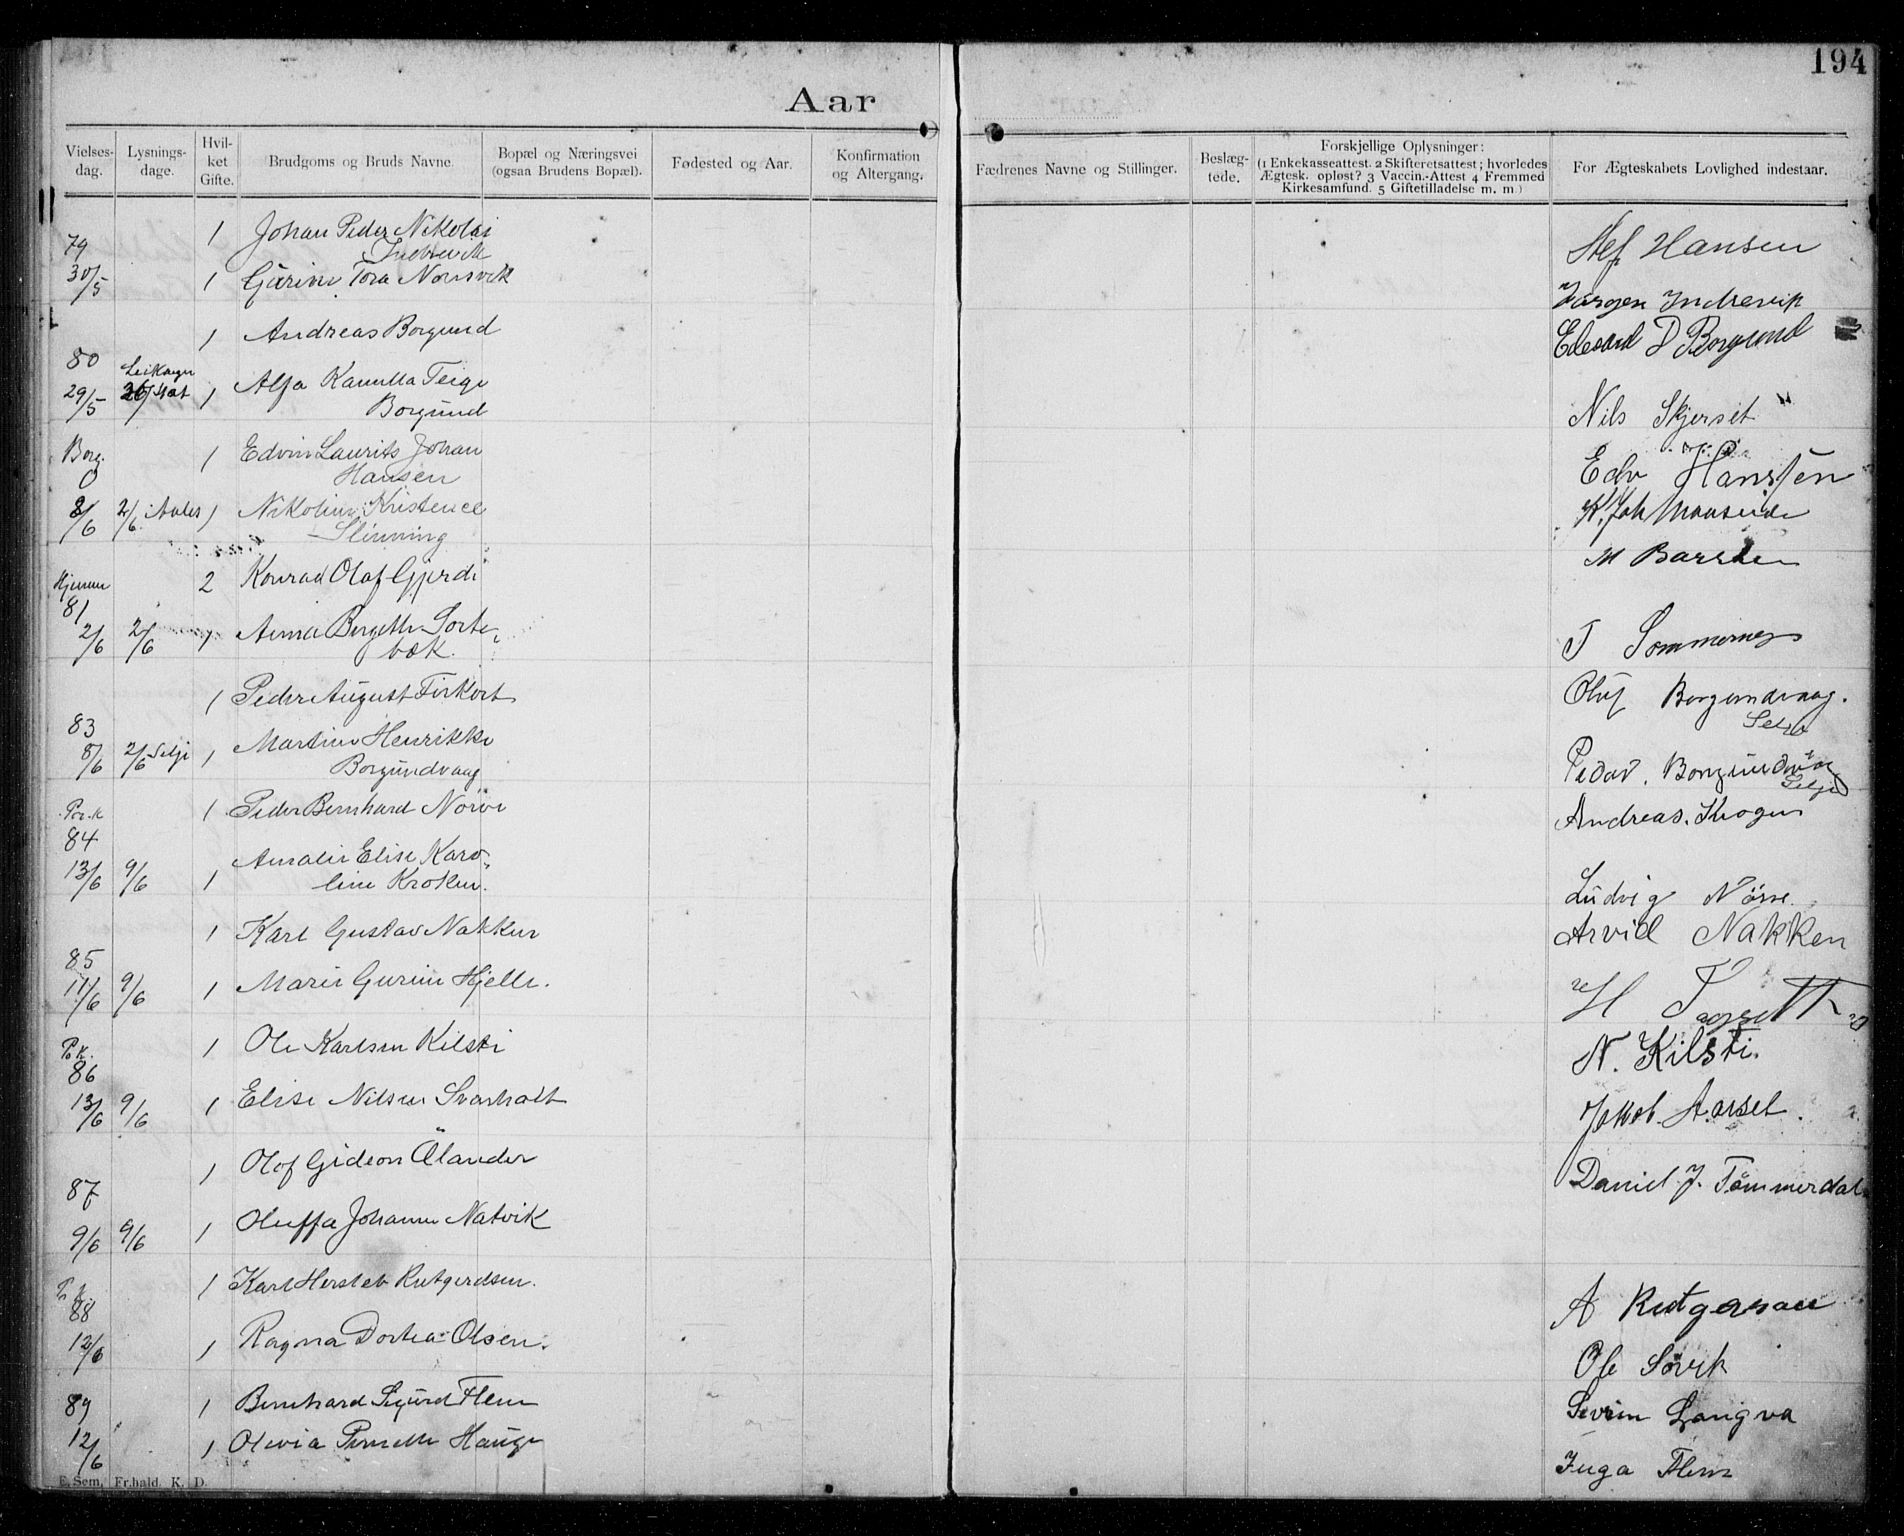 194
Aar
Vielses-dag.
Lysnings-dage.
Hvil-ket Gifte.
Brudgoms og Bruds Navne.
Bopæl og Næringsvei (ogsaa Brudens Bopæl).
Fødested og Aar.
Konfirmation og Altergang.
Fædrenes Navne og Stillinger.
Beslæg-tede.
Forskjellige Oplysninger:
(1 Enkekasseattest. 2 Skifteretsattest; hvorledes
Ægtesk. opløst? 3 Vaccin.-Attest 4 Fremmed
Kirkesamfund. 5 Giftetilladelse m. m)
For Ægteskabets Lovlighed indestaar.
1 Johan Peder Nikolai
79 Indrevik Hansen
30/5 1 Gurine Tora Norsvik
Jørgen Indrevik
1 Andreas Borgund
Edvard D Borgund
80 Leikanger
29/5 Stat 1 Alfa Kamilla Teige
Borgund
Nils Skjerset
Borg. 1 Edvin Laurits Johan
0 Hansen
Edv Hanssen
8/6 2/6 Aales 1 Nikoline Kristence
Slinning
M Barsten
Hjemme 2 Konrad Olaf Gjerde
81
2/6 2/6 1 Anna Bergette Sorte-
bæk.
1 Peder August Firkort
Oluf Borgundvaag.
Selje
83
8/6 2/6 Selje 1 Martine Henrikke
Borgundvaag
Peder. Borgundvaag
Selje
P.k. 1 Peder Bernhard Nörve
Andreas. Krogen
84
13/6 9/6 1 Amalie Elise Karo-
line Kroken.
Ludvig Nörve.
1 Karl Gustav Nakken
Arvid Nakken
85
11/6 9/6 1 Marie Gurine Hjelle.
P.k. 1 Ole Karlsen Kilsti
N. Kilsti.
86
13/6 9/6 1 Elise Nilsen Svarholt
Jakob. Aarset.
1 Olof Gideon Ölander
Daniel. J. Tømmerdal
87
9/6 9/6 1 Oluffa Johanne Natvik
P.k. 1 Karl Hersleb Rutgerdsen.
88 A Rutgersen
12/6 1 Ragna Dortea Olsen.
Ole Søvik
89 1 Bernhard Sigurd Flem
Severin Langva
12/6 1 Olevia Pernelle Hauge
Inga Flem
E. Sem, Fr.hald. K. D.